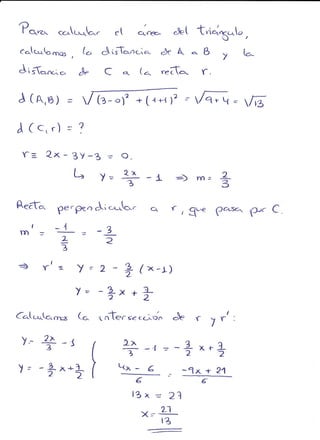 Para calcular el área del triángulo,
calculamos, la distancia de A a B y la
distancia de C a la recta r.
d(A,B) = √(3-0)² + (1+1)² = √9+4 = √13
d(C,r) = ?
r ≡ 2x - 3y - 3 = 0.
↳ y = 2x/3 - 1 ⇒ m = 2/3
Recta perpendicular a r, que pasa por C.
m' = -1/(2/3) = -3/2
⇒ r' ≡ y = 2 - 3/2 (x-1)
y = -3/2 x + 7/2
Calculamos la intersección de r y r':
y = 2x/3 - 1
y = -3/2 x + 7/2
2x/3 - 1 = -3/2 x + 7/2
4x - 6/6 = -9x + 21/6
13x = 27
x = 27/13